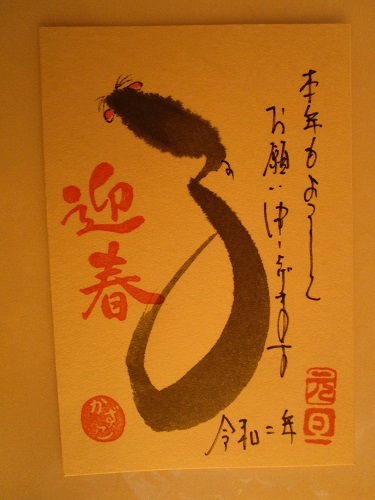 本年もよろしく
お願い申し上げます
迎春
令和二年
元旦